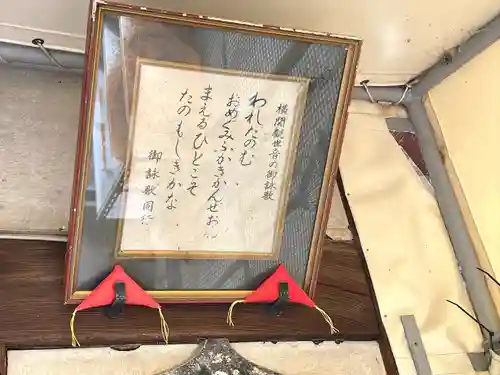 横関観世音の御詠歌
われたのむ
おめぐみふかきかんせおん
まえるひとこそ
たのもしきかな
御詠歌同行